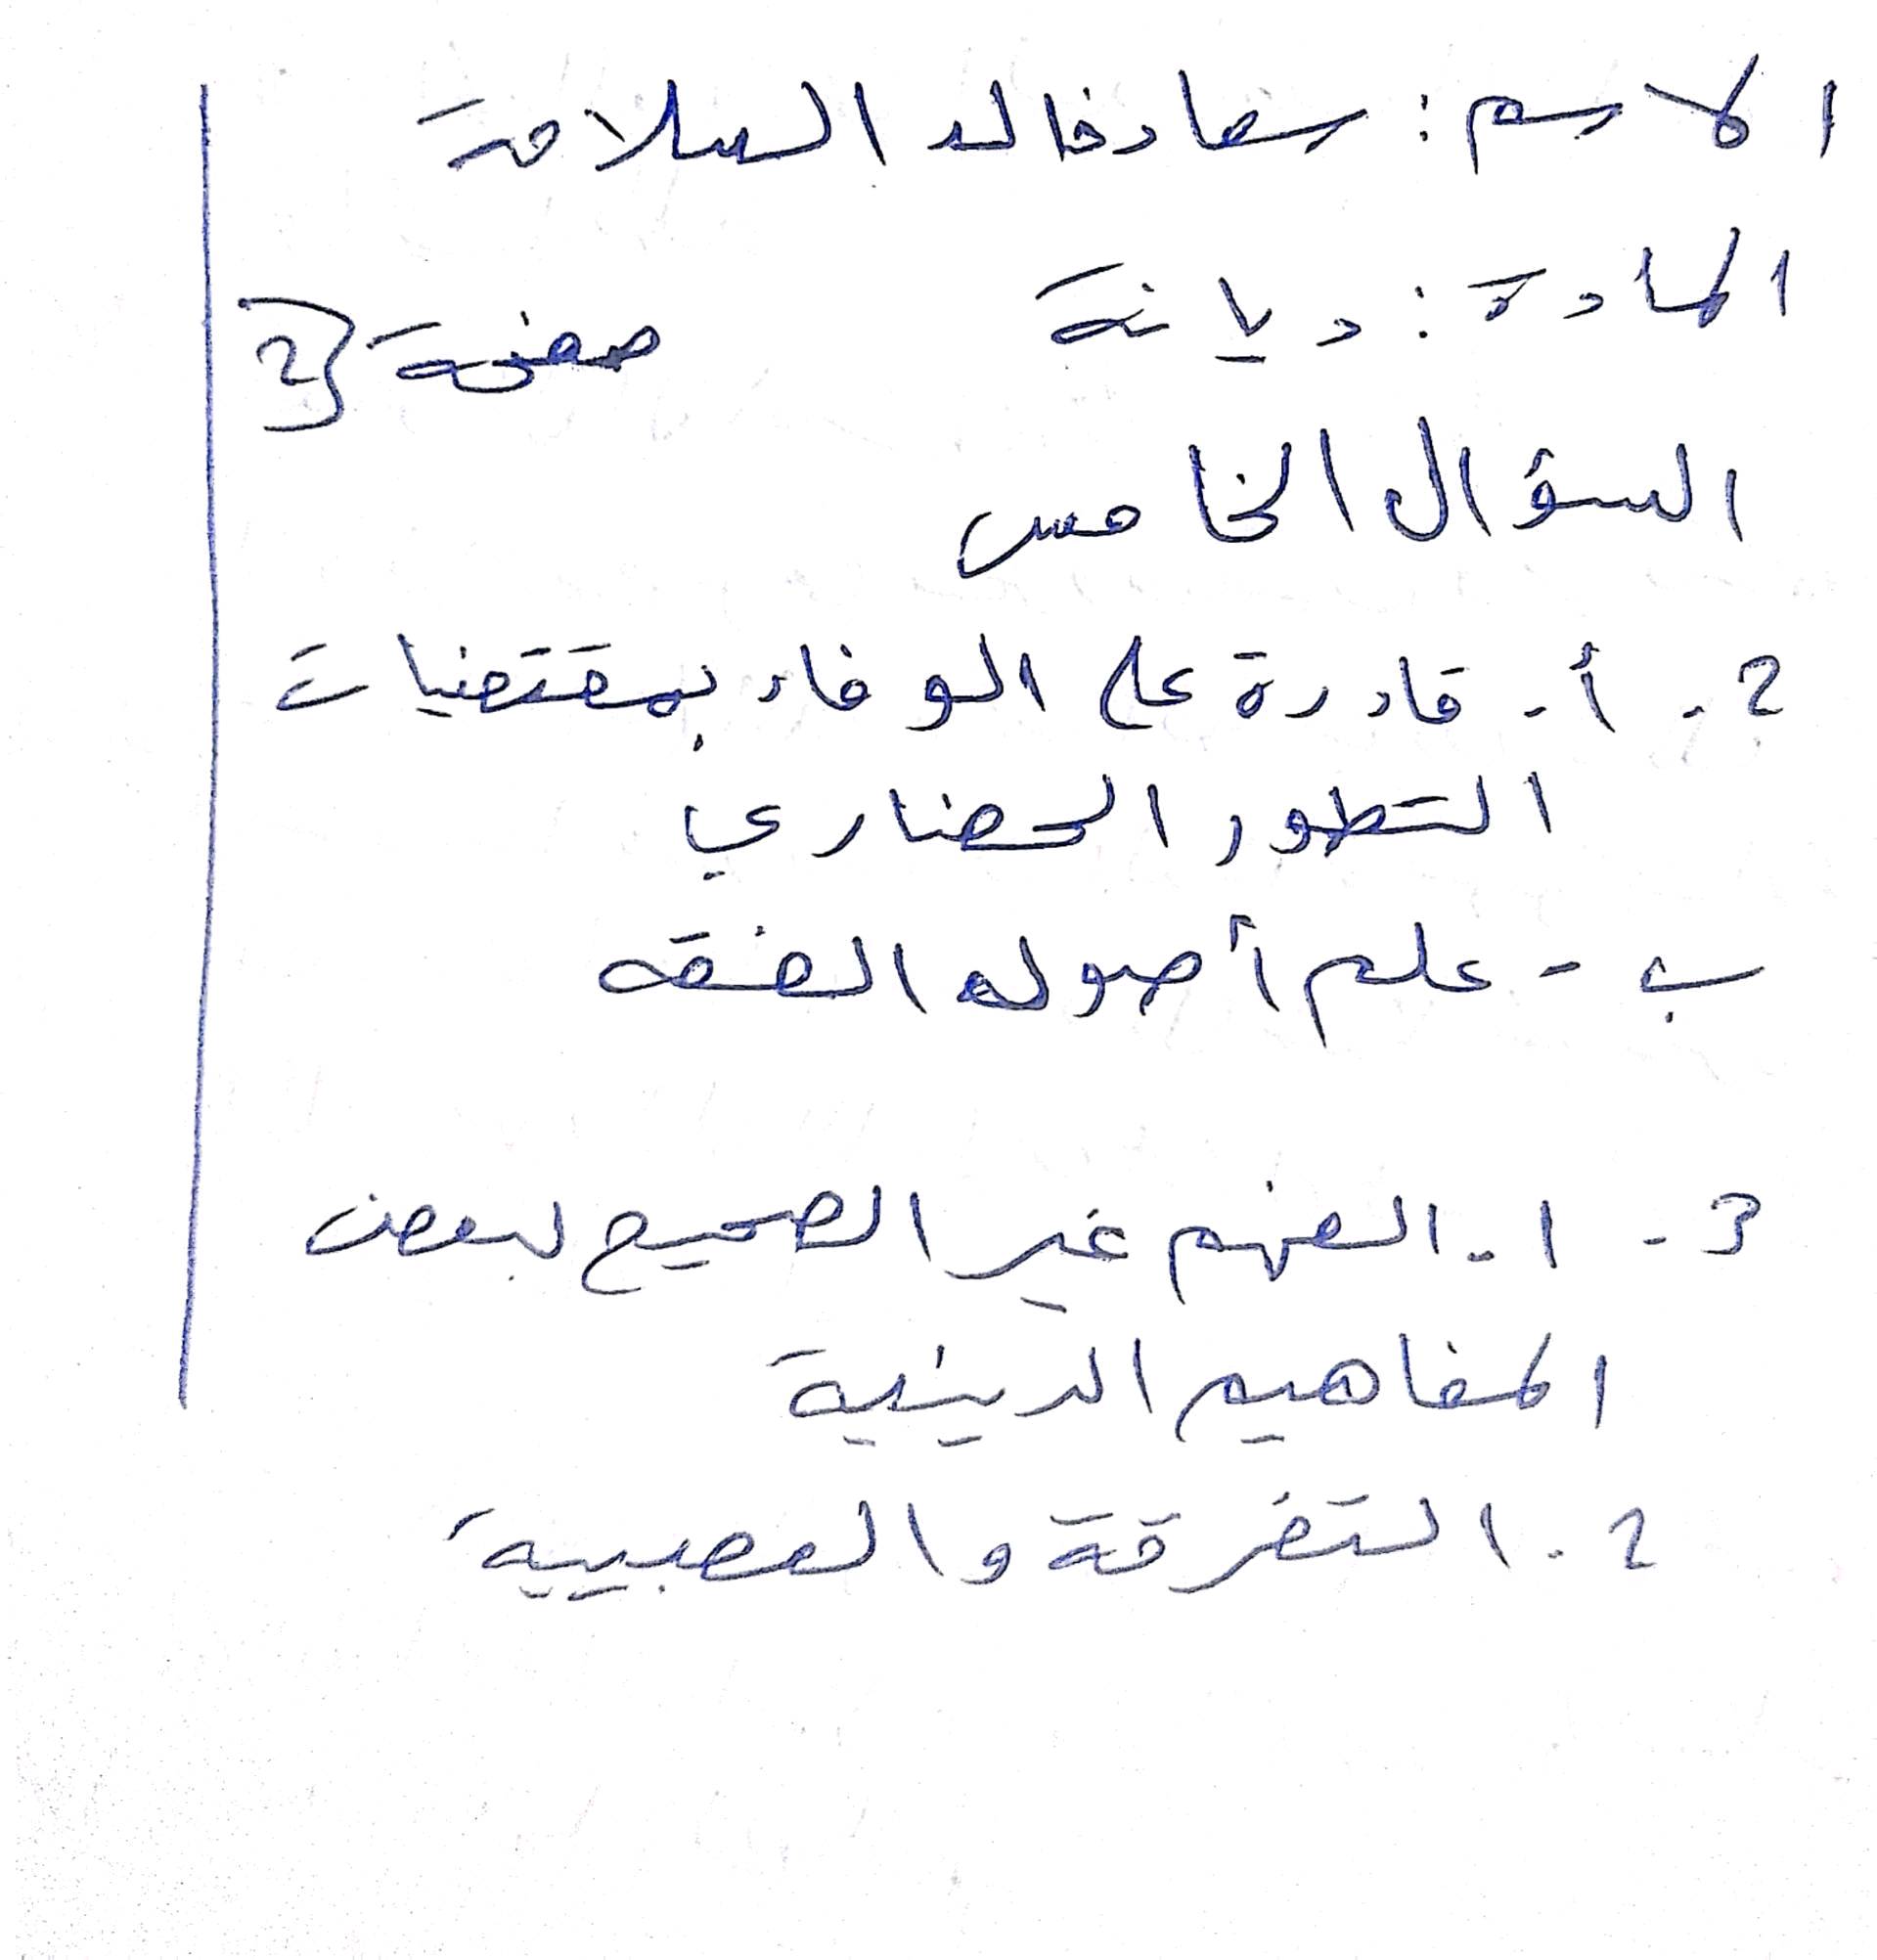 الاسم: سعاد خالد السلامة
المادة: ديانة
صفحة 2
السؤال الخامس
2. أ. قادرة على الوفاء بمقتضيات
التطور الحضاري
ب - علم أصول الفقه
3 - 1. الفهم غير الصحيح لبعض
المفاهيم الدينية
2. التفرقة والعصبية